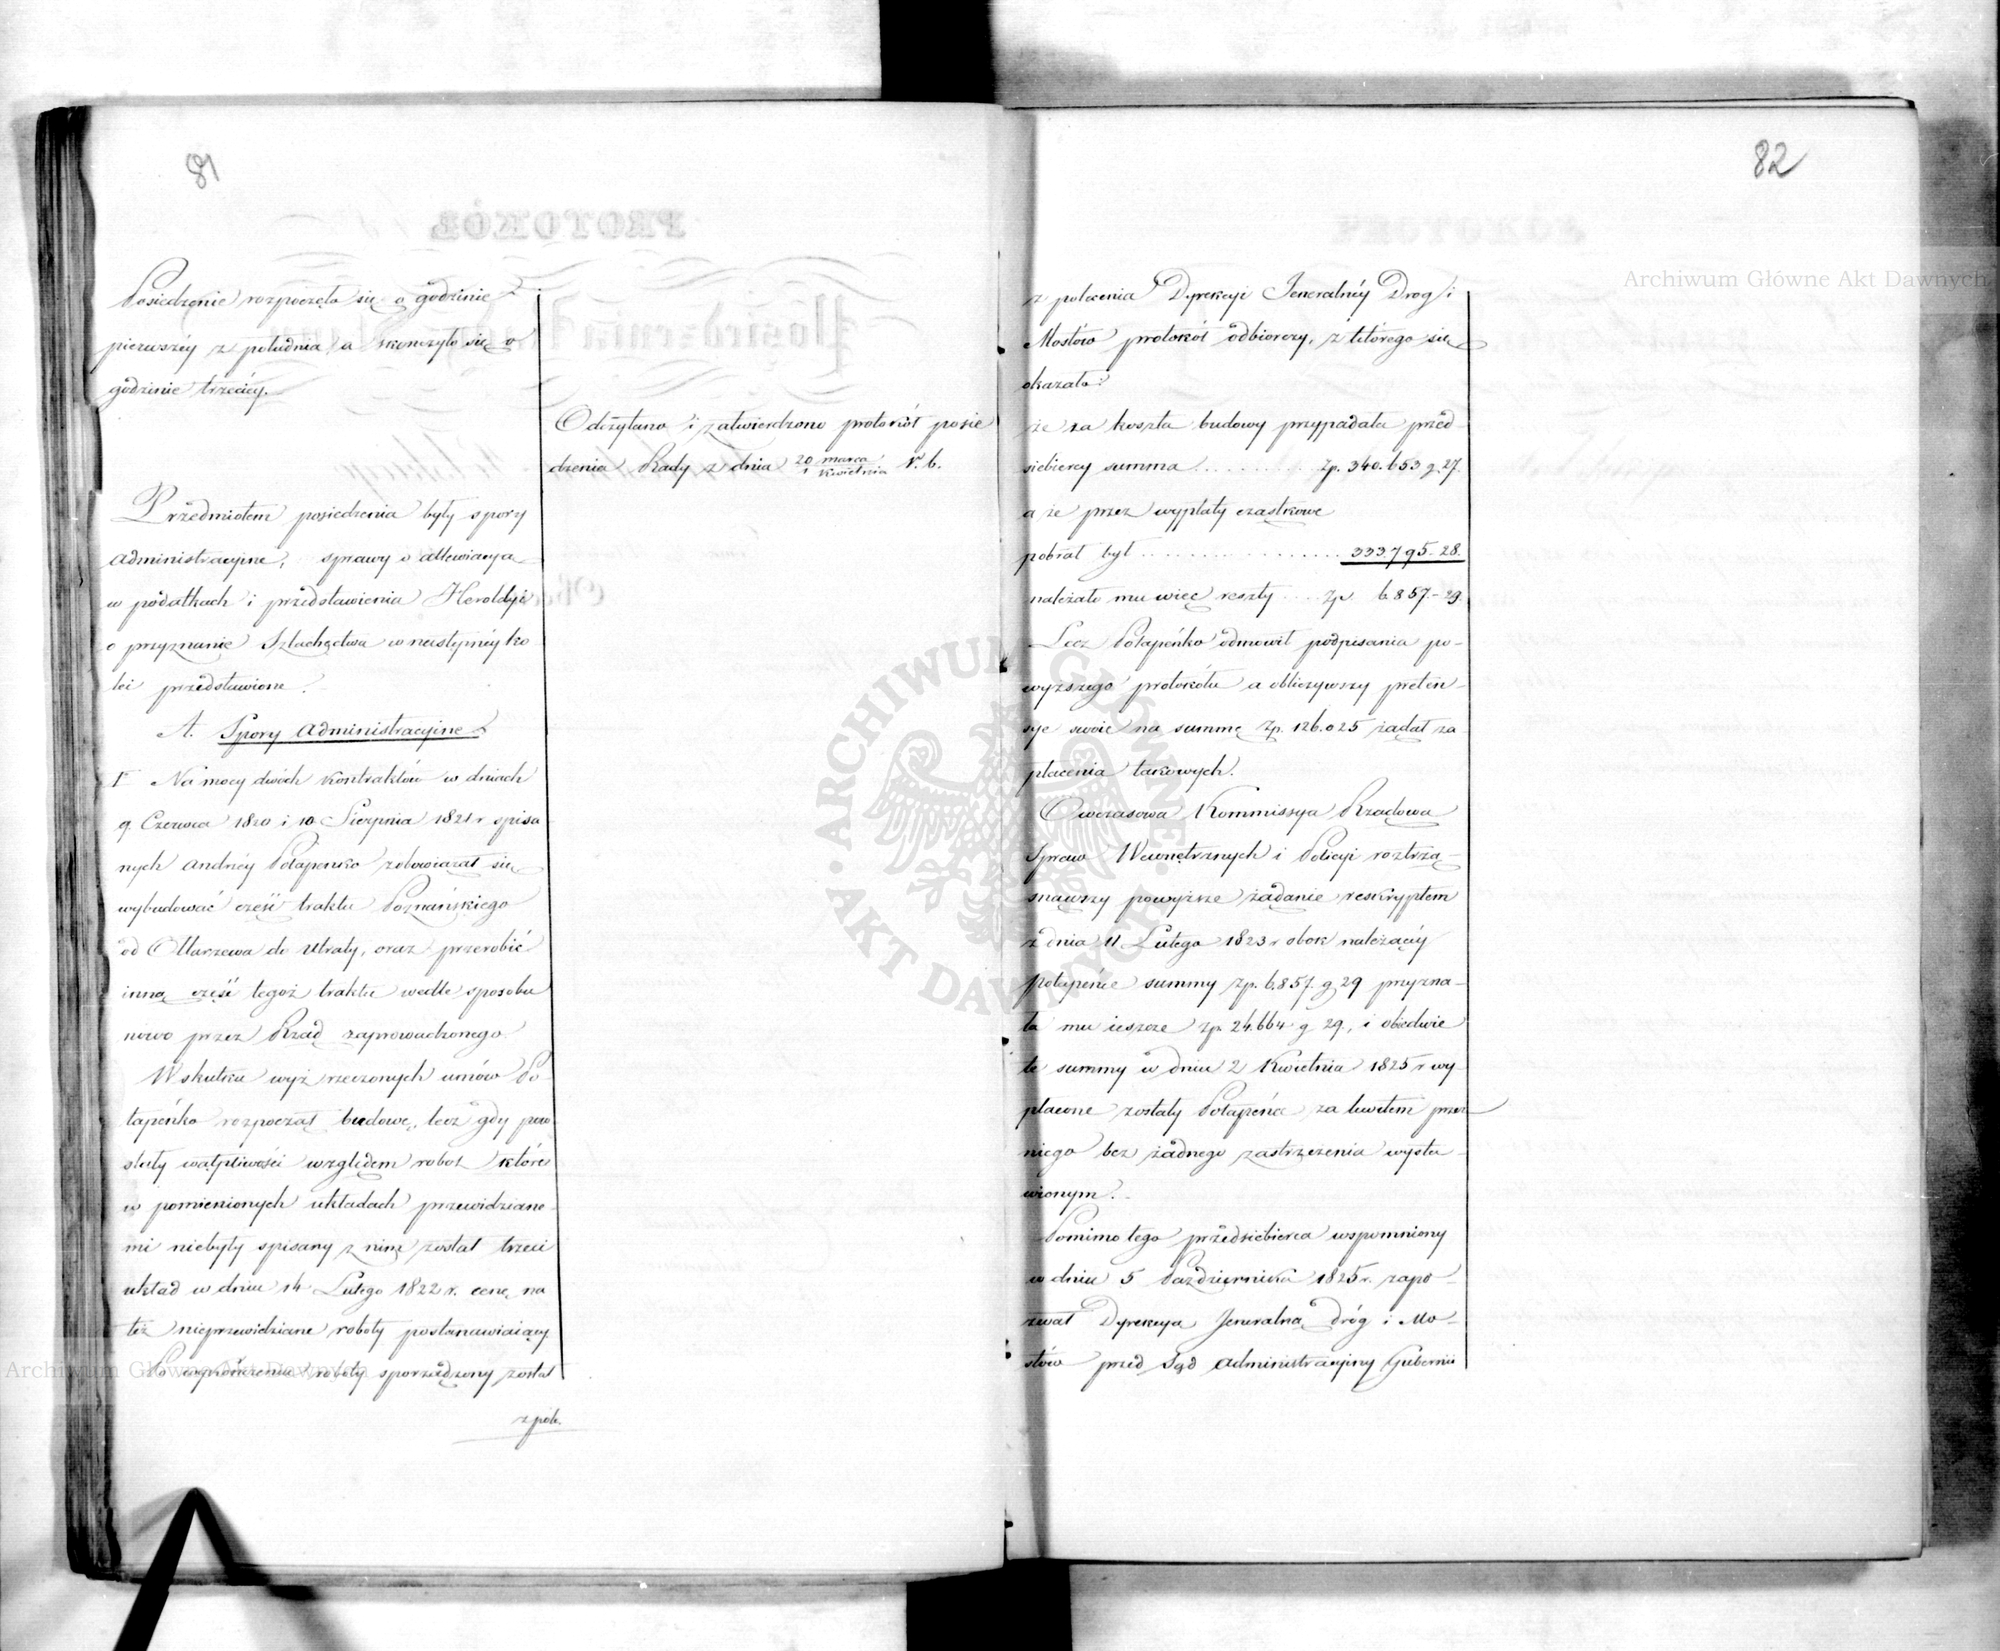 81
Posiedzenie rozpoczęło się o godzinie
pierwszéy z południa, a skończyło się o
godzinie trzeciéy.
Odczytano i zatwierdzono protokół posie
dzenia Rady z dnia 20 marca / 1 kwietnia r. b.
Przedmiotem posiedzenia były spory
administracyjne, sprawy o allewiacya
w podatkach i przedstawienia Heroldyi
o przyznanie Szlachectwa w następnéy ko
lei przedstawione.
A. Spory administracyjne
1° Na mocy dwóch kontraktów w dniach
9. Czerwca 1820 i 10 Sierpnia 1821 r spisa
nych Andrzéy Potapenko zobowiązał się
wybudować część traktu Poznańskiego
od Ołtarzewa do Utraty, oraz przerobić
inną część tegoż traktu wedle sposobu
nowo przez Rząd zaprowadzonego.
W skutku wyż rzeczonych umów Po-
tapeńko rozpoczął budowę, lecz gdy pow
stały wątpliwości względem robót które
w pomienionych układach przewidziane-
mi niebyły spisany z nim został trzeci
układ w dniu 14 Lutego 1822 r. cenę na
też nieprzewidziane roboty postanawiaiący.
Po ukończeniu roboty sporządzony został
z pole.
82
z polecenia Dyrekcyi Jeneralnéy Dróg i
Mostów protokół odbiorczy, z którego się
okazało:
że za koszta budowy przypadała przed-
siębiercy summa .......... Zp. 340.653 g. 27.
a że przez wypłaty cząstkowe
pobrał był .................. 333.795 - 28.
należało mu więc reszty .... Zp. 6.857. - 29.
Lecz Potapeńko odmówił podpisania po-
wyższego protokółu a obliczywszy preten-
sye swoie na summę Zp. 126.025 żądał za
płacenia takowych.
Owczasowa Kommissya Rządowa
Spraw Wewnętrznych i Policyi roztrzą-
snąwszy powyższe żądanie reskryptem
z dnia 11 Lutego 1823 r obok należącéy
Potapeńce summy Zp. 6.857. g 29 przyzna-
ła mu ieszcze Zp. 24.664 g 29, i obiedwie
te summy w dniu 2 Kwietnia 1825 r wy-
płacone zostały Potapeńce za kwitem przez
niego bez żadnego zastrzeżenia wysta-
wionym.
Pomimo tego przedsiębierca wspomniony
w dniu 5 Października 1825 r. zapo-
zwał Dyrekcyą Jeneralną dróg i Mo-
stów przed Sąd Administracyjny Gubernii
Archiwum Główne Akt Dawnych
Archiwum Główne Akt Dawnych
ARCHIWUM GŁÓWNE AKT DAWNYCH